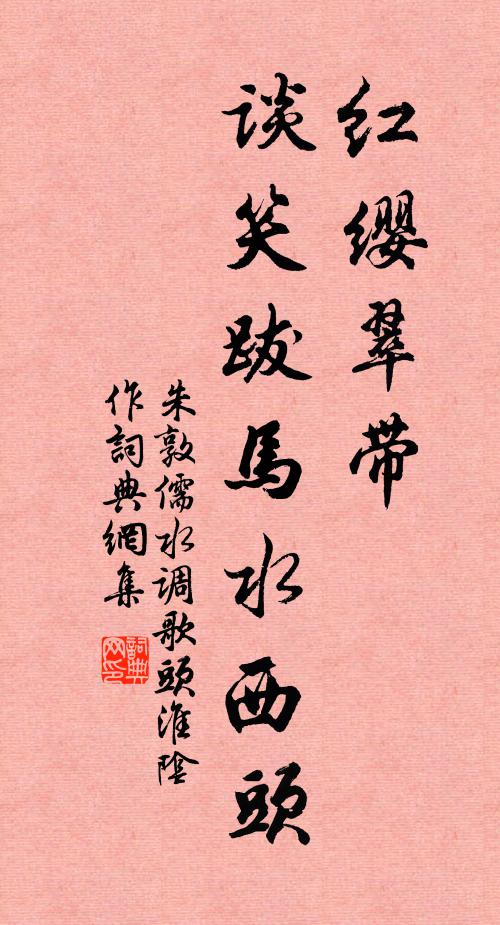 红缨翠带
谈笑跋馬水西頭
朱敦儒水调歌頭淮陰
作詞典網集
詞典网印